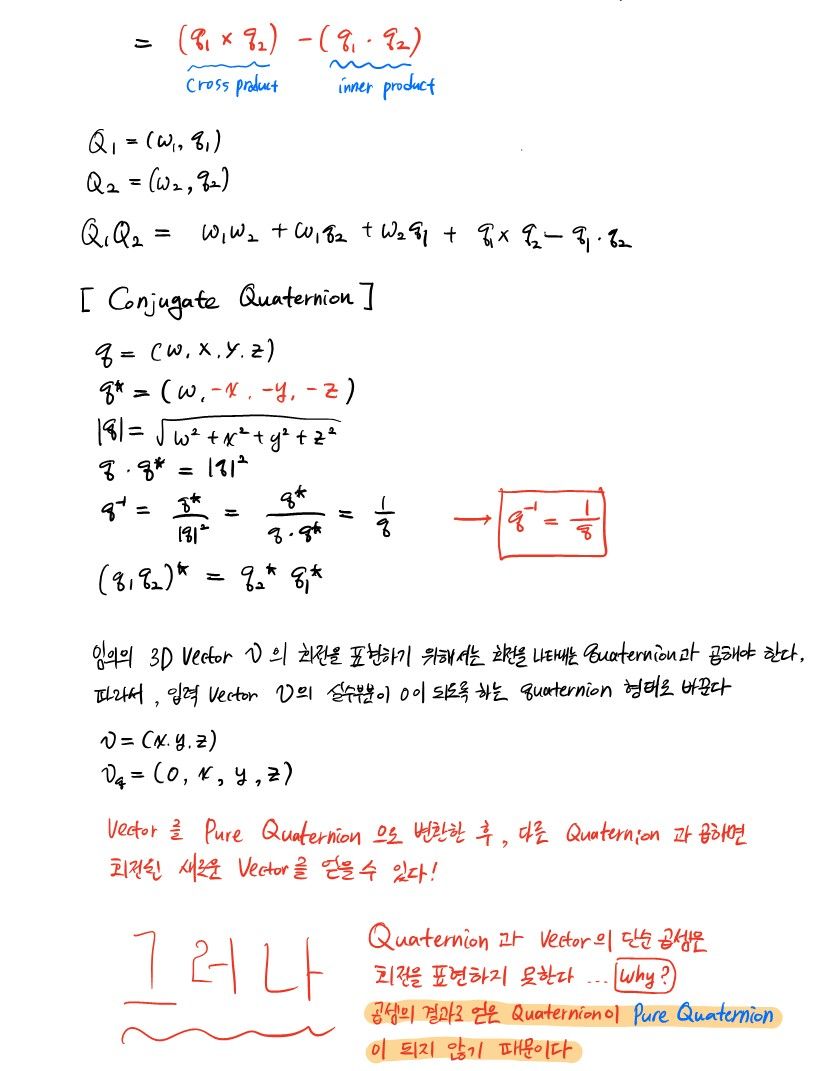 = (q₁ × q₂) - (q₁ · q₂)
cross product inner product
Q₁ = (w₁, q₁)
Q₂ = (w₂, q₂)
Q₁Q₂ = w₁w₂ + w₁q₂ + w₂q₁ + q₁ × q₂ - q₁ · q₂
[ Conjugate Quaternion ]
q = (w, x, y, z)
q* = (w, -x, -y, -z)
|q| = √(w² + x² + y² + z²)
q · q* = |q|²
q⁻¹ = q*/|q|² = q*/(q · q*) = 1/q → q⁻¹ = 1/q
(q₁q₂)* = q₂* q₁*
임의의 3D Vector v 의 회전을 표현하기 위해서는 회전을 나타내는 quaternion과 곱해야 한다.
따라서, 입력 Vector v의 실수부분이 0이 되도록 하는 quaternion 형태로 바꾼다
v = (x, y, z)
v_q = (0, x, y, z)
Vector 를 Pure Quaternion 으로 변환한 후, 다른 Quaternion 과 곱하면
회전된 새로운 Vector를 얻을 수 있다!
그러나
Quaternion 과 Vector의 단순 곱셈은
회전을 표현하지 못한다 ... Why?
곱셈의 결과로 얻은 Quaternion이 Pure Quaternion
이 되지 않기 때문이다